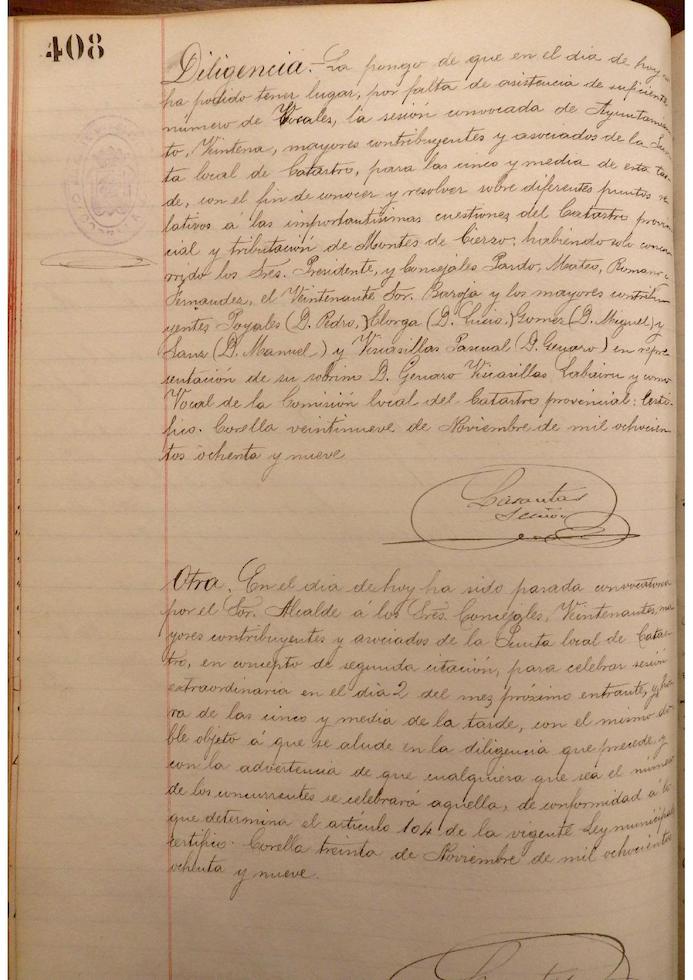 408
Diligencia.- La pongo de que en el dia de hoy
ha podido tener lugar, por falta de asistencia de suficiente
número de Vocales, la sesión convocada de Ayuntamien-
to, Veintena, mayores contribuyentes y asociados de la Jun-
ta local de Catastro, para las cinco y media de esta tar-
de, con el fin de conocer y resolver sobre diferentes puntos re-
lativos á las importantísimas cuestiones del Catastro provin-
cial y tributación de Montes de Cierzo; habiendo solo concu-
rrido los Sres. Presidente, y Concejales Pardo, Mateo, Romano y
Fernandez, el Veintenante Sor. Baroja y los mayores contribu-
yentes Poyales (D. Pedro,) Elorga (D. Lucio,) Gomez (D. Miguel) y
Sanz (D. Manuel) y Viscasillas Pascual (D. Genaro) en repre-
sentación de su sobrino D. Genaro Viscasillas y como
Vocal de la Comisión local del Catastro provincial: Certi-
fico. Corella veintinueve de Noviembre de mil ochocien-
tos ochenta y nueve
Otra. En el dia de hoy ha sido pasada convocatoria
por el Sor. Alcalde á los Sres. Concejales, Veintenantes, ma-
yores contribuyentes y asociados de la Junta local de Catas-
tro, en concepto de segunda citación, para celebrar sesión
extraordinaria en el dia 2 del mes próximo entrante, y ho-
ra de las cinco y media de la tarde, con el mismo do-
ble objeto á que se alude en la diligencia que precede, y
con la advertencia de que cualquiera que sea el número
de los concurrentes se celebrará aquella, de conformidad á lo
que determina el artículo 104 de la vigente Ley municipal
certifico. Corella treinta de Noviembre de mil ochocientos
ochenta y nueve.